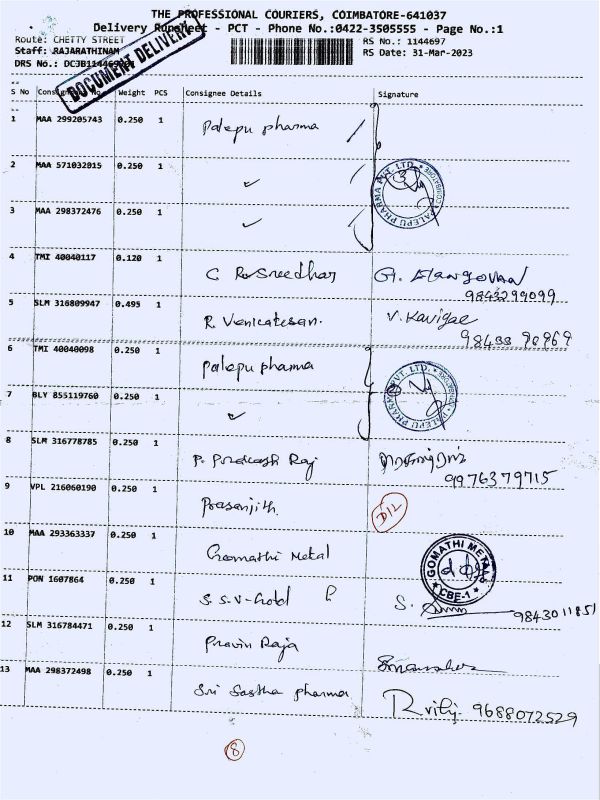 THE PROFESSIONAL COURIERS, COIMBATORE-641037
Delivery Runsheet - PCT - Phone No.:0422-3505555 - Page No.:1
Route: CHETTY STREET
RS No.: 1144697
Staff: RAJARATHINAM
RS Date: 31-Mar-2023
DRS No.:
DOCUMENT DELIVERY
S No Weight PCS Consignee Details Signature
1 MAA 299205743 0.250 1 Palepu pharma
2 MAA 571032015 0.250 1 ✓
PALEPU PHARMA PVT. LTD. COIMBATORE
3 MAA 298372476 0.250 1 ✓
4 TMI 40040117 0.120 1 C R Sreedhar G. Elangovan
9843299099
5 SLM 316809947 0.495 1 R. Venkatesan. V. Kavigae
6 TMI 40040098 0.250 1 Palepu pharma
PALEPU PHARMA PVT. LTD. COIMBATORE
7 BLY 855119760 0.250 1 ✓
8 SLM 316778785 0.250 1 P. Prakash Raj
9976379715
9 VPL 216060190 0.250 1 Prasanjith D/L
10 MAA 293363337 0.250 1 Gomathi Metal
GOMATHI METALS CBE-1
11 PON 1607864 0.250 1 S.S.V-Gold S.
9843011851
12 SLM 316784471 0.250 1 Pravin Raja
13 MAA 298372498 0.250 1 Sri Sastha pharma 9688072529
8